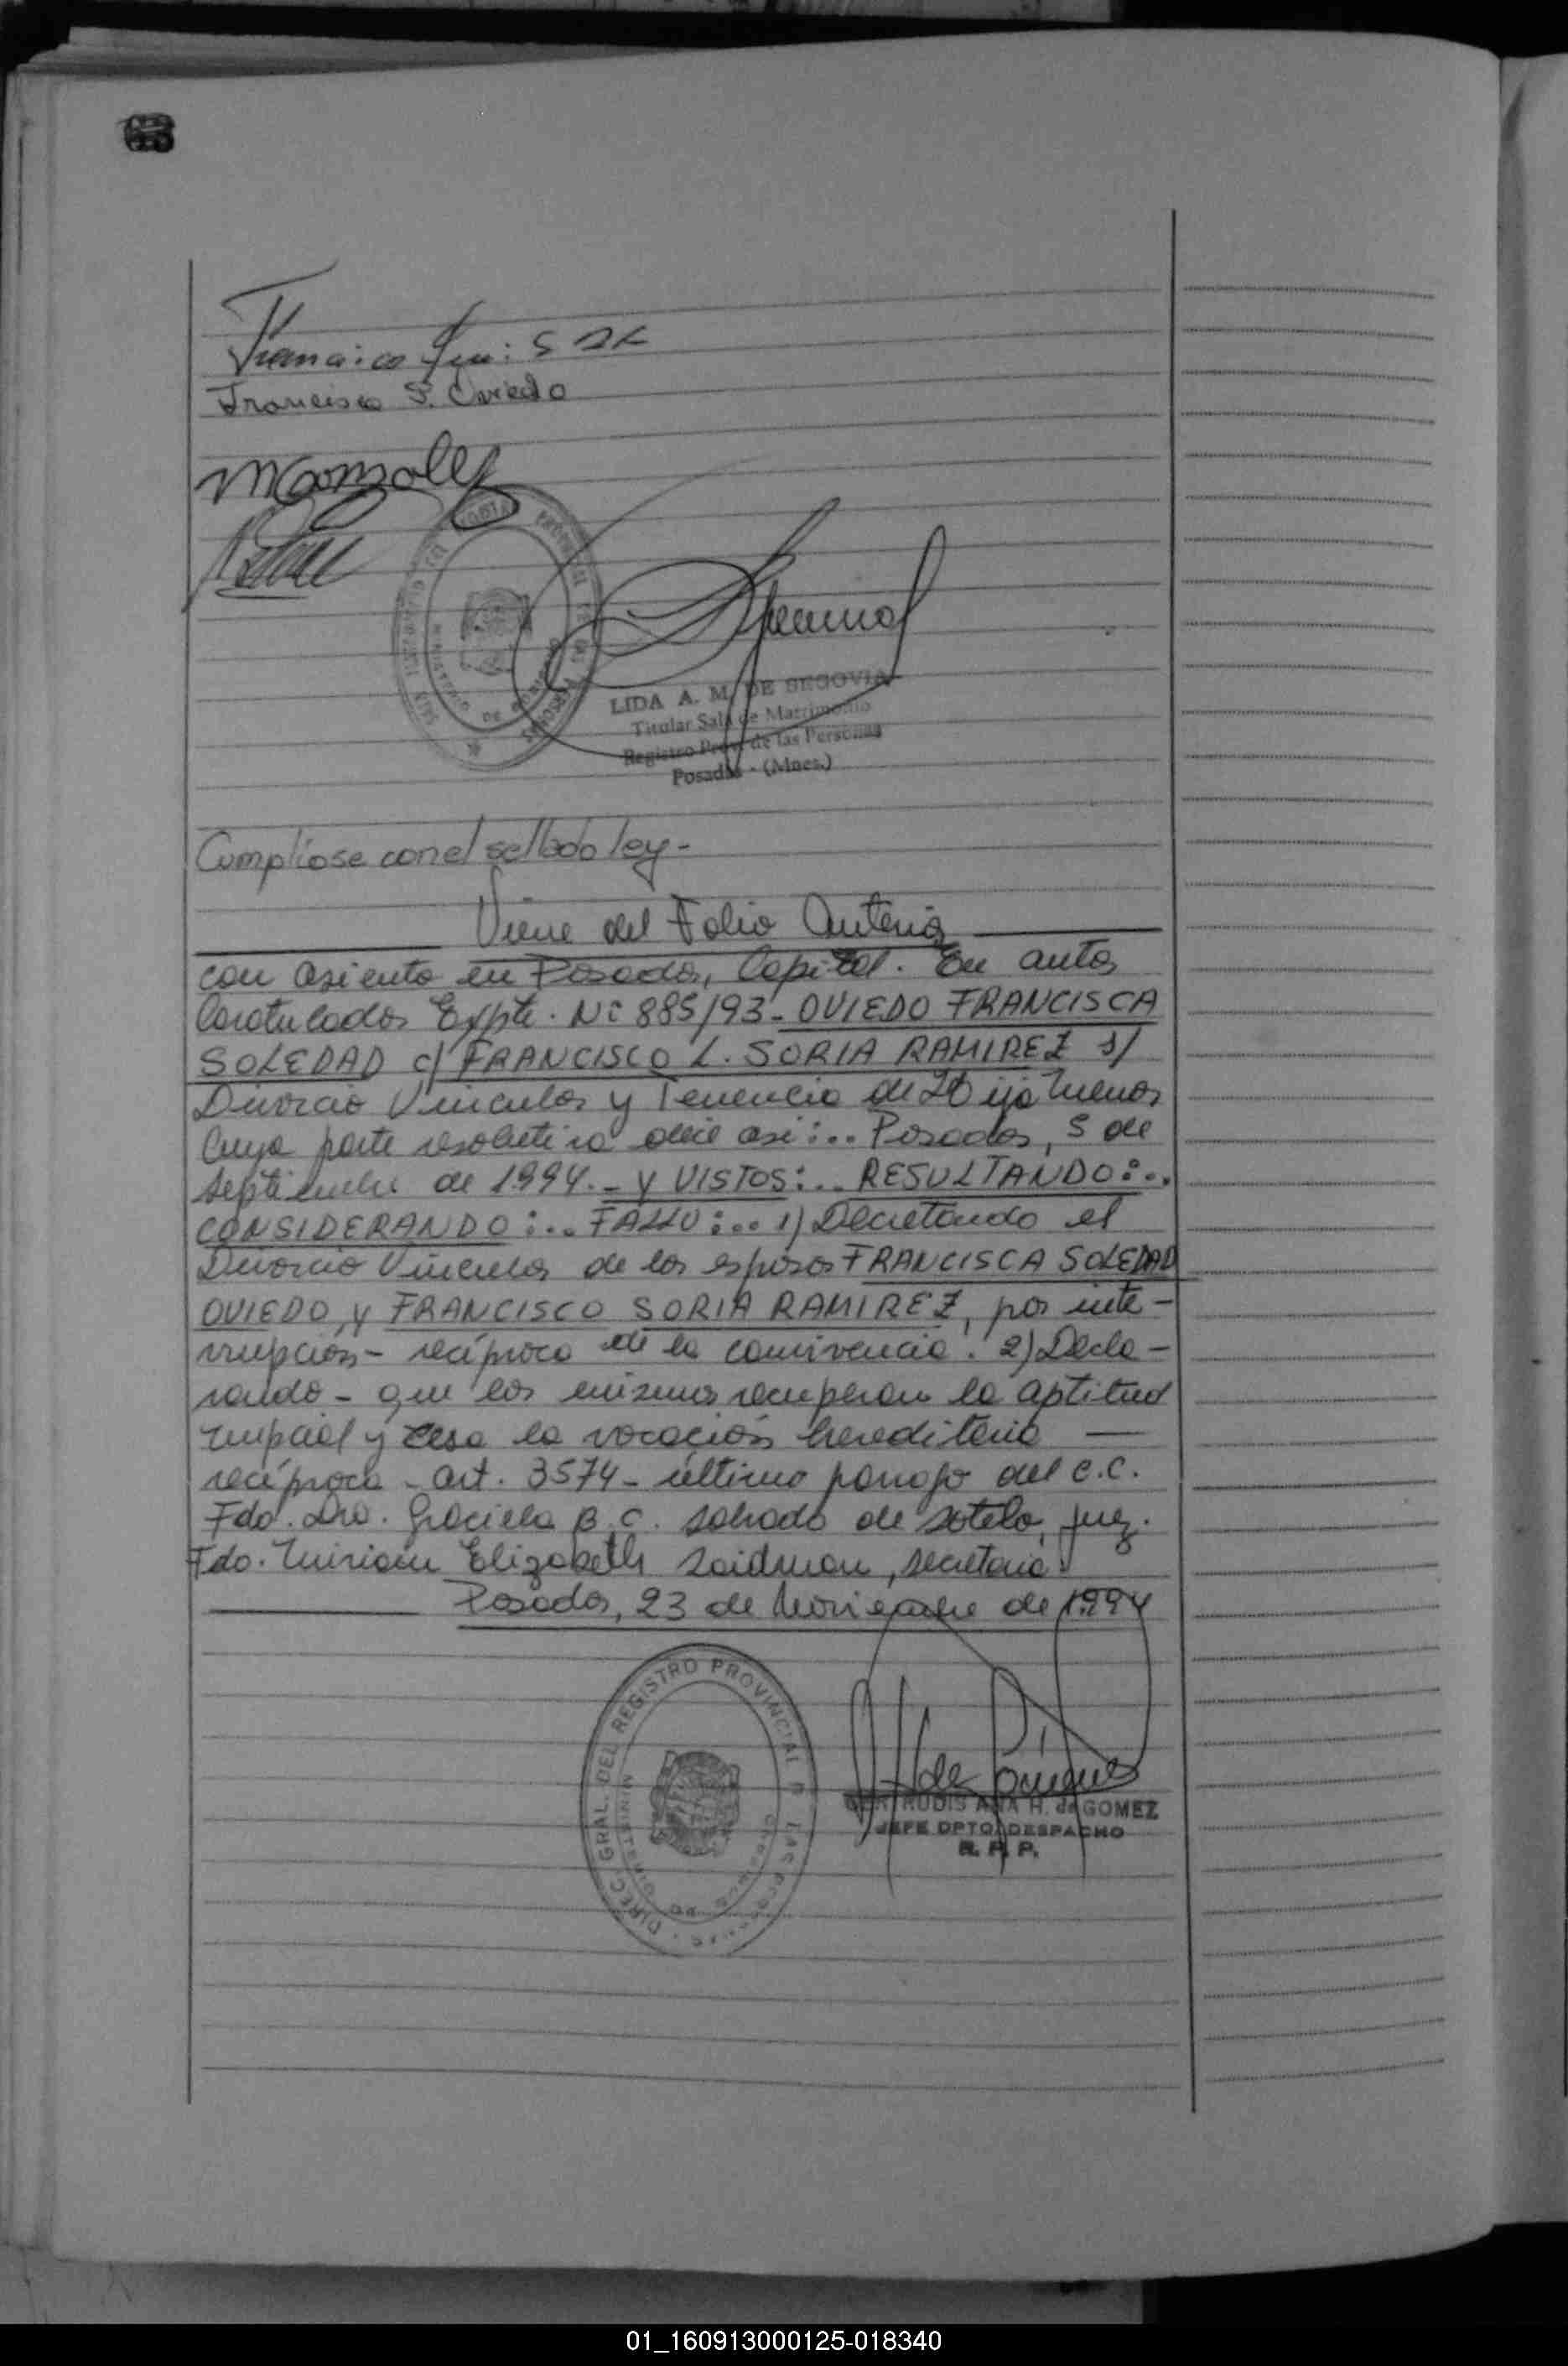 Francisco S. Oviedo
MGonzalez
LIDA A. M. DE SEGOVIA
Titular Sala de Matrimonio
Registro Prov. de las Personas
Posadas - (Mnes.)
Cumplíose con el sellado ley-
Viene del Folio Anterior
con asiento en Posadas, Capital. En autos
Carotulados Expte. Nº 885/93- OVIEDO FRANCISCA
SOLEDAD c/ FRANCISCO L. SORIA RAMIREZ s/
Divorcio Vincular y Tenencia de Hija Menor
Cuya parte resolutiva dice así:.. Posadas, 5 de
septiembre de 1.994.- Y VISTOS:.. RESULTANDO:..
CONSIDERANDO:.. FALLO:... 1) Decretando el
Divorcio Vincular de los esposos FRANCISCA SOLEDAD
OVIEDO, y FRANCISCO SORIA RAMIREZ, por inte-
rrupción- recíproca de la convivencia. 2) Decla-
rando- que los mismos recuperan la aptitud
nupcial y cesa la vocación hereditaria —
recíproca - art. 3574- último párrafo del C.C.
Fdo. Dra. Graciela B. C. Salvado de Sotelo, Juez.
Fdo. Miriam Elizabeth Zaidman, secretaria.
Posadas, 23 de Noviembre de 1.994
DIREC. GRAL. DEL REGISTRO PROVINCIAL DE LAS PERSONAS
MINISTERIO DE GOBIERNO
H de Gómez
GERTRUDIS ANA H. de GOMEZ
JEFE DPTO. DESPACHO
R. P. P.
01_160913000125-018340